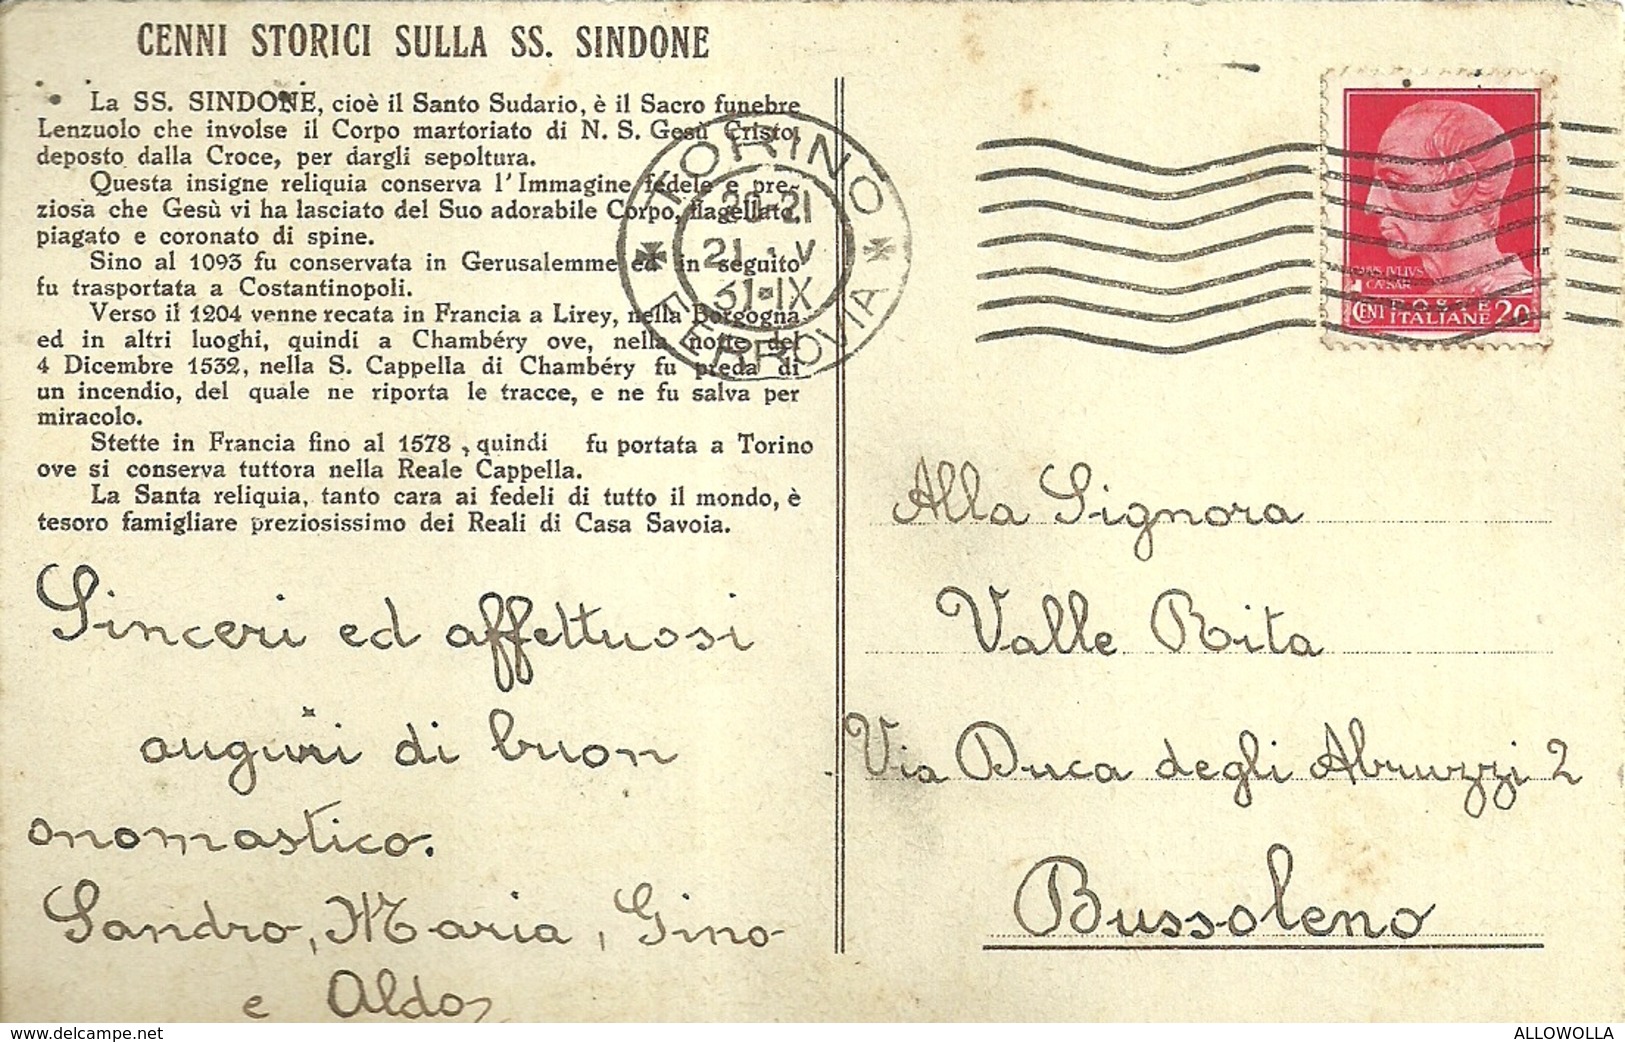 CENNI STORICI SULLA SS. SINDONE
La SS. SINDONE, cioè il Santo Sudario, è il Sacro funebre
Lenzuolo che involse il Corpo martoriato di N. S. Gesù Cristo,
deposto dalla Croce, per dargli sepoltura.
Questa insigne reliquia conserva l'Immagine fedele e pre-
ziosa che Gesù vi ha lasciato del Suo adorabile Corpo, flagellato,
piagato e coronato di spine.
Sino al 1093 fu conservata in Gerusalemme ed in seguito
fu trasportata a Costantinopoli.
Verso il 1204 venne recata in Francia a Lirey, nella Borgogna
ed in altri luoghi, quindi a Chambéry ove, nella notte del
4 Dicembre 1532, nella S. Cappella di Chambéry fu preda di
un incendio, del quale ne riporta le tracce, e ne fu salva per
miracolo.
Stette in Francia fino al 1578, quindi fu portata a Torino
ove si conserva tuttora nella Reale Cappella.
La Santa reliquia, tanto cara ai fedeli di tutto il mondo, è
tesoro famigliare preziosissimo dei Reali di Casa Savoia.
TORINO
20-21
21 . V
31-IX
FERROVIA
IVLIVS
CAESAR
POSTE
CENT ITALIANE 20
Sinceri ed affettuosi
auguri di buon
onomastico.
Sandro, Maria, Gino
e Aldo
Alla Signora
Valle Rita
Via Duca degli Abruzzi 2
Bussoleno
www.delcampe.net
ALLOWOLLA